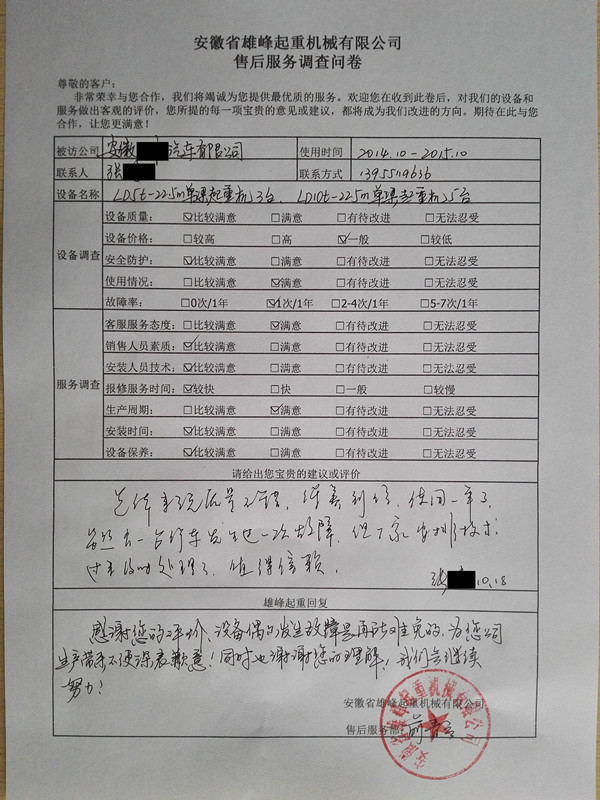 安徽省雄峰起重机械有限公司
售后服务调查问卷
尊敬的客户：
非常荣幸与您合作，我们将竭诚为您提供最优质的服务。欢迎您在收到此卷后，对我们的设备和
服务做出客观的评价，您所提的每一项宝贵的意见或建议，都将成为我们改进的方向。期待在此与您
合作，让您更满意！
被访公司 安徽 汽车有限公司 使用时间 2014.10-2015.10
联系人 张 联系方式
设备名称 LD5t-22.5m单梁起重机3台、LD10t-22.5m单梁起重机5台
设备调查
设备质量： ☑比较满意 □满意 □有待改进 □无法忍受
设备价格： □较高 □高 ☑一般 □较低
安全防护： ☑比较满意 □满意 □有待改进 □无法忍受
使用情况： □比较满意 ☑满意 □有待改进 □无法忍受
故障率： □0次/1年 ☑1次/1年 □2-4次/1年 □5-7次/1年
服务调查
客服服务态度： □比较满意 ☑满意 □有待改进 □无法忍受
销售人员素质： ☑比较满意 □满意 □有待改进 □无法忍受
安装人员技术： ☑比较满意 □满意 □有待改进 □无法忍受
报修服务时间： ☑较快 □快 □一般 □较慢
生产周期： □比较满意 ☑满意 □有待改进 □无法忍受
安装时间： ☑比较满意 □满意 □有待改进 □无法忍受
设备保养： ☑比较满意 □满意 □有待改进 □无法忍受
请给出您宝贵的建议或评价
质量不错，使用一年了，
一台行车发生过一次故障，但厂家安排技术
过来及时处理了，值得信赖。
张 10.18
雄峰起重回复
感谢您的评价，设备偶尔发生故障是再所难免的，为您公司
生产带来不便深表歉意！同时也谢谢您的理解！我们会继续
努力！
安徽省雄峰起重机械有限公司
售后服务部：
安徽省雄峰起重机械有限公司